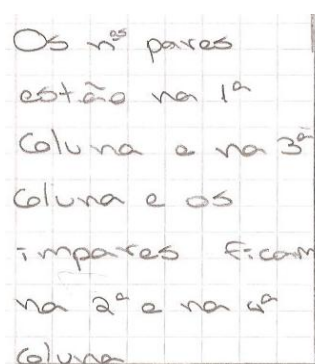 Os nºs pares
estão na 1ª
coluna e na 3ª
coluna e os
impares ficam
na 2ª e na 4ª
coluna